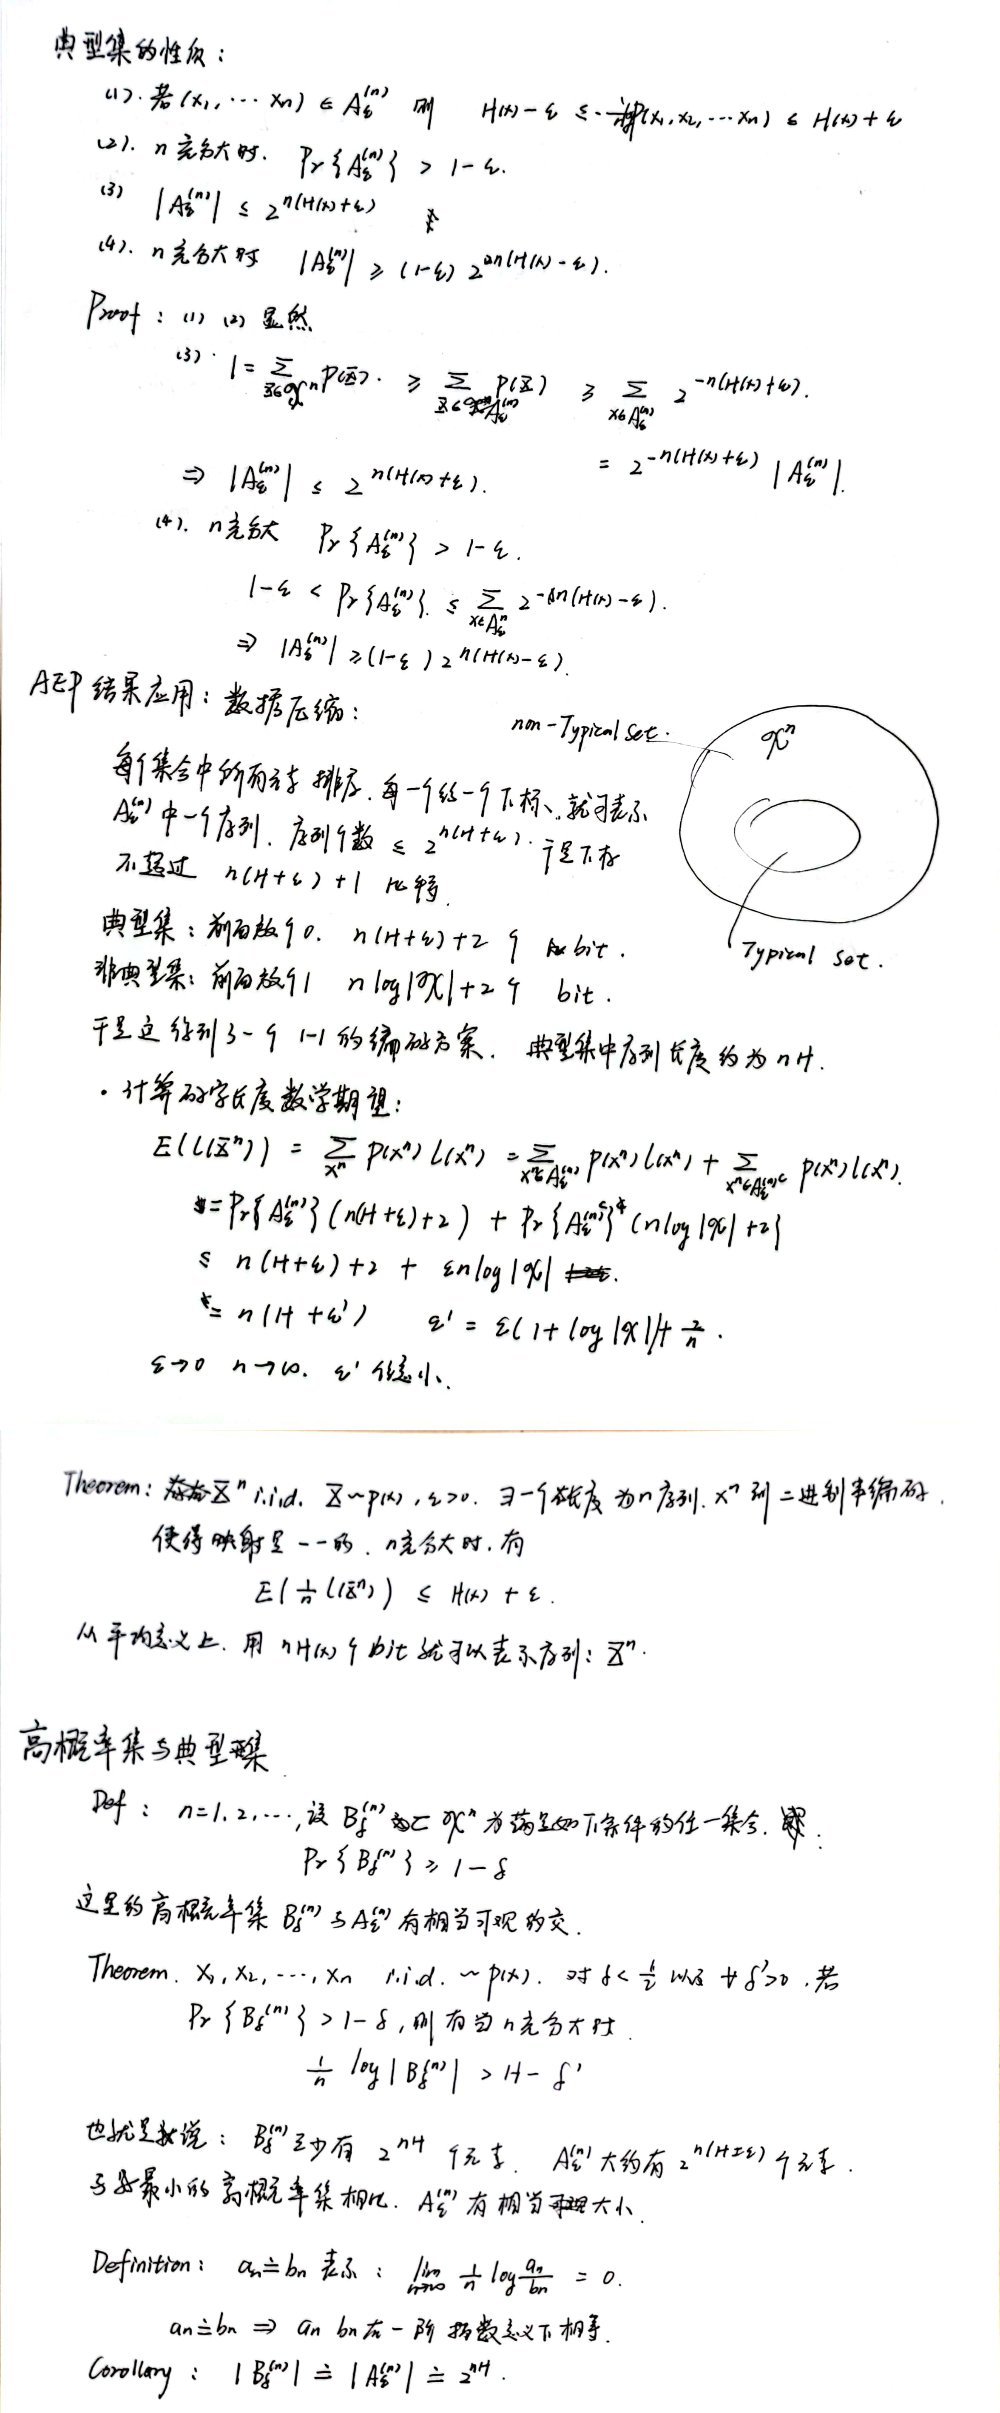 典型集的性质:
(1). 若(x₁, ⋯ xₙ) ∈ A_ε^(n) 则 H(x) - ε ≤ -1/n log p(x₁, x₂, ⋯ xₙ) ≤ H(x) + ε
(2). n 充分大时. Pr{A_ε^(n)} > 1-ε.
(3) |A_ε^(n)| ≤ 2^{n(H(x)+ε)}
(4). n 充分大时 |A_ε^(n)| ≥ (1-ε) 2^{n(H(x)-ε)}.
Proof: (1) (2) 显然
(3). 1 = Σ_{X∈𝒳^n} p(X). ≥ Σ_{X∈A_ε^(n)} p(X) ≥ Σ_{x∈A_ε^(n)} 2^{-n(H(x)+ε)}.
= 2^{-n(H(x)+ε)} |A_ε^(n)|.
⇒ |A_ε^(n)| ≤ 2^{n(H(x)+ε)}.
(4). n充分大 Pr{A_ε^(n)} > 1-ε.
1-ε < Pr{A_ε^(n)}. ≤ Σ_{x∈A_ε^n} 2^{-n(H(x)-ε)}.
⇒ |A_ε^(n)| ≥ (1-ε) 2^{n(H(x)-ε)}.
AEP 结果应用: 数据压缩:
non-Typical set.
𝒳^n
每个集合中所有元素 排序. 每一个给一个下标、就可表示
A_ε^(n) 中一个序列. 序列个数 ≤ 2^{n(H+ε)}. 于是下标
不超过 n(H+ε)+1 比特.
典型集: 前面放个0. n(H+ε)+2 个 bit.
Typical set.
非典型集: 前面放个1 n log|𝒳|+2 个 bit.
于是这得到了一个 1-1 的编码方案. 典型集中序列长度约为 nH.
· 计算码字长度数学期望:
E(l(X^n)) = Σ_{x^n} p(x^n) l(x^n) = Σ_{x^n∈A_ε^(n)} p(x^n) l(x^n) + Σ_{x^n∈A_ε^(n)c} p(x^n) l(x^n).
= Pr{A_ε^(n)} (n(H+ε)+2) + Pr{A_ε^(n)c} (n log|𝒳| +2)
≤ n(H+ε)+2 + εn log|𝒳|
= n(H+ε') ε' = ε(1+log|𝒳|)+ 2/n.
ε→0 n→∞. ε' 任意小.
Theorem: X^n i.i.d. X~p(x), ε>0. ∃一个长度为n序列. x^n 到二进制串编码.
使得映射是一一的. n充分大时. 有
E(1/n l(X^n)) ≤ H(x) + ε.
从平均意义上. 用 nH(x)个bit 就可以表示序列: X^n.
高概率集与典型集
Def: n=1. 2. ⋯, 设 B_δ^(n) ⊂ 𝒳^n 为满足如下条件的任一集合.
Pr{B_δ^(n)} ≥ 1-δ
这里的高概率集 B_δ^(n) 与 A_ε^(n) 有相当可观的交.
Theorem. X₁, X₂, ⋯, Xₙ i.i.d. ~ p(x). 对 δ< 1/2 以及 ∀δ'>0. 若
Pr{B_δ^(n)} > 1-δ, 则有当n充分大时
1/n log|B_δ^(n)| > H-δ'
也就是说: B_δ^(n) 至少有 2^{nH} 个元素. A_ε^(n) 大约有 2^{n(H±ε)} 个元素.
与最小的高概率集相比. A_ε^(n) 有相当大小.
Definition: aₙ≐bₙ 表示: lim_{n→∞} 1/n log aₙ/bₙ = 0.
aₙ≐bₙ ⇒ aₙ bₙ在一阶指数意义下相等.
Corollary: |B_δ^(n)| ≐ |A_ε^(n)| ≐ 2^{nH}.